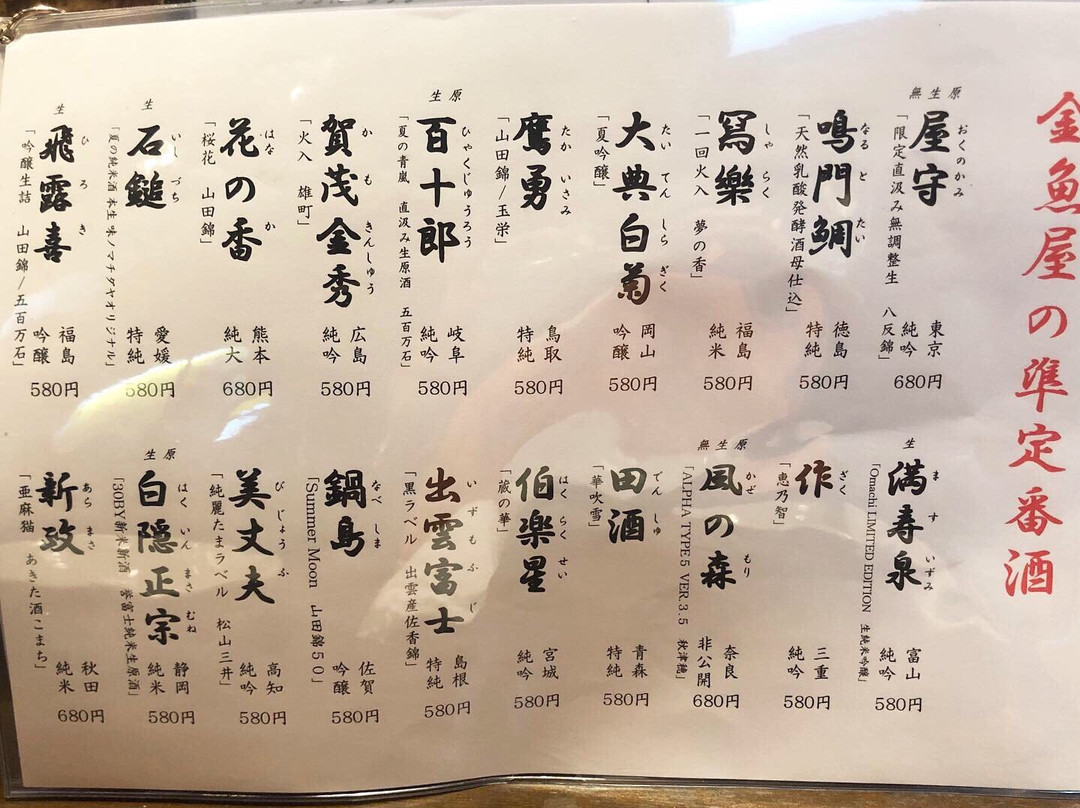 金魚屋の準定番酒
無生原
屋守
おくのかみ
「限定直汲み無調整生 八反錦」
東京
純吟
680円
鳴門鯛
なると たい
「天然乳酸発酵酒母仕込」
徳島
特純
580円
冩樂
しゃ らく
「一回火入 夢の香」
福島
純米
580円
大典白菊
たい てん しら ぎく
「夏吟醸」
岡山
吟醸
580円
鷹勇
たか いさみ
「山田錦/玉栄」
鳥取
特純
580円
生原
百十郎
ひゃくじゅうろう
「夏の青嵐 直汲み生原酒 五百万石」
岐阜
純吟
580円
賀茂金秀
か も きんしゅう
「火入 雄町」
広島
純吟
580円
花の香
はな か
「桜花 山田錦」
熊本
純大
680円
生
石鎚
いし づち
「夏の純米酒 本生 味ノマチダヤオリジナル」
愛媛
特純
580円
生
飛露喜
ひ ろ き
「吟醸生詰 山田錦/五百万石」
福島
吟醸
580円
生
満寿泉
ま す いずみ
「Omachi LIMITED EDITION 生純米吟醸」
富山
純吟
580円
作
ざく
「恵乃智」
三重
純吟
580円
無生原
風の森
かぜ もり
「ALPHA TYPE5 VER.3.5 秋津穂」
奈良
非公開
680円
田酒
でん しゅ
「華吹雪」
青森
特純
580円
伯楽星
はく らく せい
「蔵の華」
宮城
純吟
580円
出雲富士
いずも ふ じ
「黒ラベル 出雲産佐香錦」
島根
特純
580円
鍋島
なべ しま
「Summer Moon 山田錦50」
佐賀
吟醸
580円
美丈夫
び じょう ふ
「純麗たまラベル 松山三井」
高知
純吟
580円
生原
白隠正宗
はく いん まさ むね
「30BY新米新酒 誉富士純米生原酒」
静岡
純米
580円
新政
あら まさ
「亜麻猫 あきた酒こまち」
秋田
純米
680円